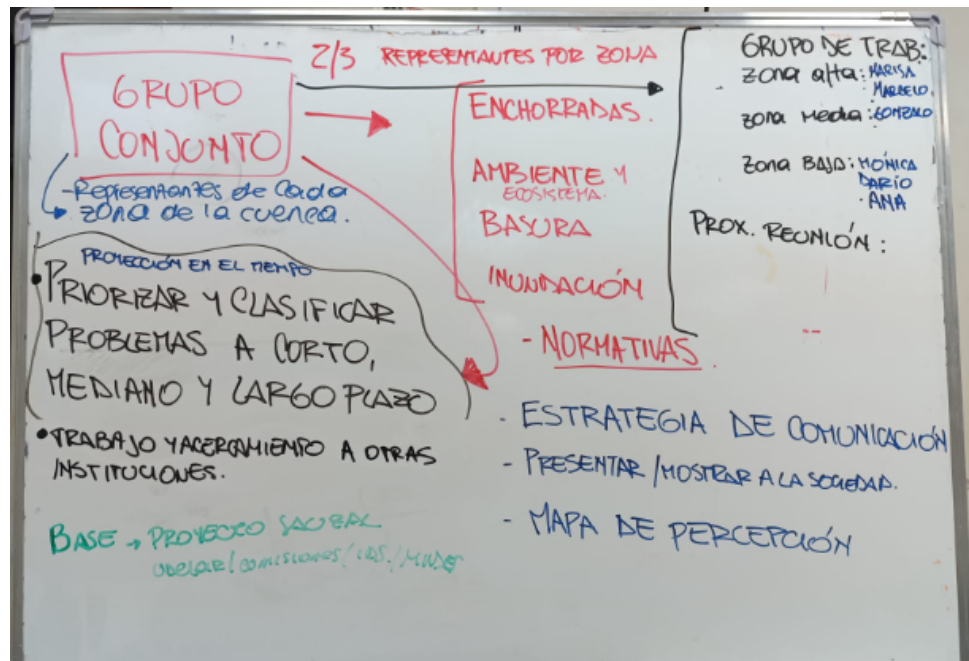 2/3 REPRESENTANTES POR ZONA
GRUPO
CONJUNTO
-Representantes de Cada
zona de la cuenca.
ENCHORRADAS.
AMBIENTE Y
ECOSISTEMA.
BASURA
INUNDACIÓN
- NORMATIVAS
GRUPO DE TRAB:
zona alta: MARISA
MARCELO.
zona media: GONZALO
zona BAJA: MÓNICA
DARÍO
· ANA
PROX. REUNIÓN:
--
PROYECCIÓN EN EL TIEMPO
• PRIORIZAR Y CLASIFICAR
PROBLEMAS A CORTO,
MEDIANO Y LARGO PLAZO
• TRABAJO Y ACERCAMIENTO A OTRAS
INSTITUCIONES.
BASE → PROYECTO
udelar/comisiones/
- ESTRATEGIA DE COMUNICACIÓN
- PRESENTAR/MOSTRAR A LA SOCIEDAD.
- MAPA DE PERCEPCIÓN